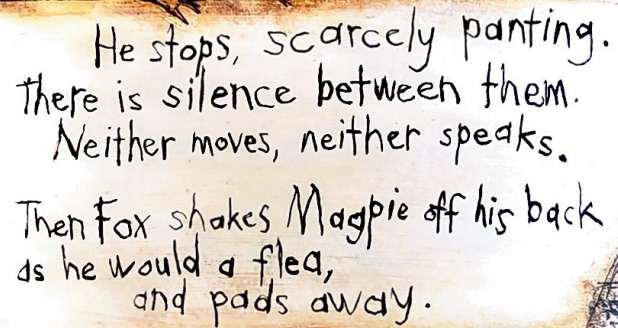 He stops, scarcely panting.
There is silence between them.
Neither moves, neither speaks.
Then Fox shakes Magpie off his back
as he would a flea,
and pads away.